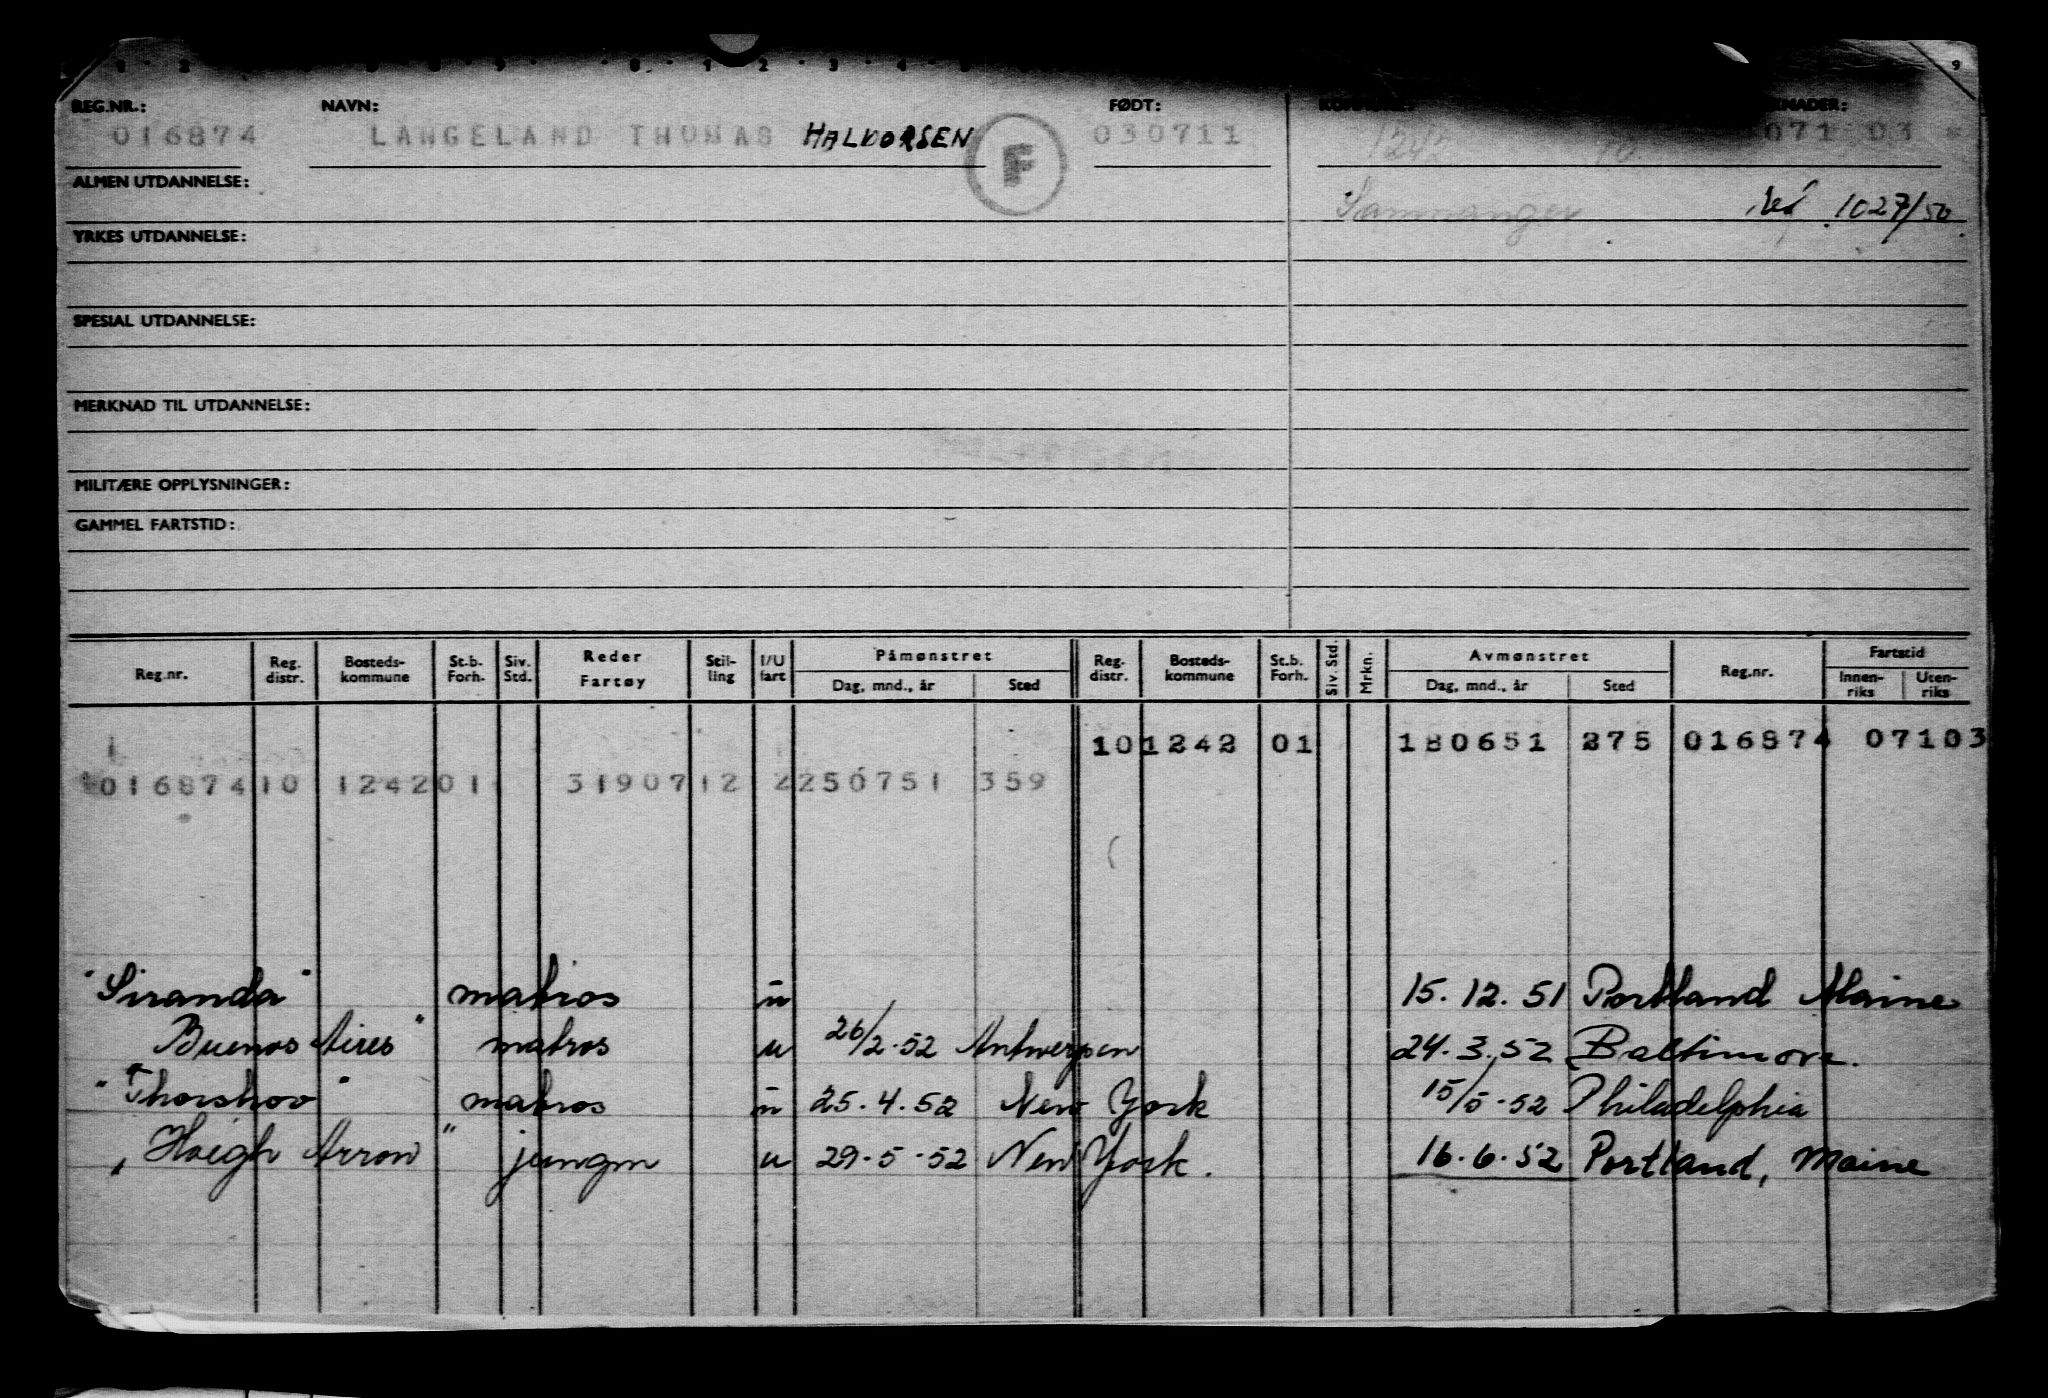 REG.NR.: NAVN: FØDT: KNADER:
016874 LANGELAND THOMAS HALDORSEN F 030711 1242 071 03 *
ALMEN UTDANNELSE: Samnanger 1027/50
YRKES UTDANNELSE:
SPESIAL UTDANNELSE:
MERKNAD TIL UTDANNELSE:
MILITÆRE OPPLYSNINGER:
GAMMEL FARTSTID:
Reg.nr. Reg. distr. Bosteds- kommune St.b. Forh. Siv. Std. Reder Fartøy Stil- ling I/U fart Påmønstret Dag, mnd., år Sted Reg. distr. Bosteds- kommune St.b. Forh. Siv. Std. Mrkn. Avmønstret Dag, mnd., år Sted Reg.nr. Fartstid Innen- riks Uten- riks
10 1242 01 180651 275 016874 07103
016874 10 1242 01 31907 12 2 250751 359
"Siranda" matros u 15.12.51 Portland Maine
Buenos Aires" matros u 26/2.52 Antwerpen 24.3.52 Baltimore.
"Thorshov" matros u 25.4.52 New York 15/5.52 Philadelphia
"Høegh Arrow" jungm u 29.5.52 New York. 16.6.52 Portland, Maine